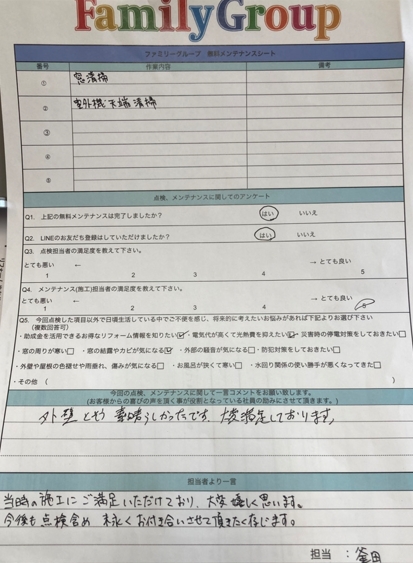 FamilyGroup
ファミリーグループ 無料メンテナンスシート
番号 作業内容 備考
① 窓清掃
② 室外機天端清掃
③
④
⑤
点検、メンテナンスに関してのアンケート
Q1. 上記の無料メンテナンスは完了しましたか? はい いいえ
Q2. LINEのお友だち登録はしていただけましたか? はい いいえ
Q3. 点検担当者の満足度を教えて下さい。
とても悪い ← → とても良い
1 2 3 4 5
Q4. メンテナンス(施工)担当者の満足度を教えて下さい。
とても悪い ← → とても良い
1 2 3 4 5
Q5. 今回点検した項目以外で日頃生活している中でご不便を感じ、将来的に考えたいお悩みがあれば下記よりお選び下さい
(複数回答可)
・助成金を活用できるお得なリフォーム情報を知りたい☑ ・電気代が高くて光熱費を抑えたい☑ ・災害時の停電対策をしておきたい□
・窓の周りが寒い□ ・窓の結露やカビが気になる☑ ・外部の騒音が気になる□ ・防犯対策をしておきたい□
・外壁や屋根の色褪せや雨垂れ、痛みが気になる□ ・お風呂が狭くて寒い□ ・水回り関係の使い勝手が悪くなってきた□
・その他 ( )
今回の点検、メンテナンスに関して一言コメントをお願い致します。
(お客様からの喜びの声を頂く事が役割となっている社員の励みにさせて頂きます。)
外壁とても素晴らしかったです。大変満足しております。
担当者より一言
当時の施工にご満足いただけており、大変嬉しく思います。
今後も点検含め末永くお付き合いさせて頂きたく存じます。
担当 : 釜田